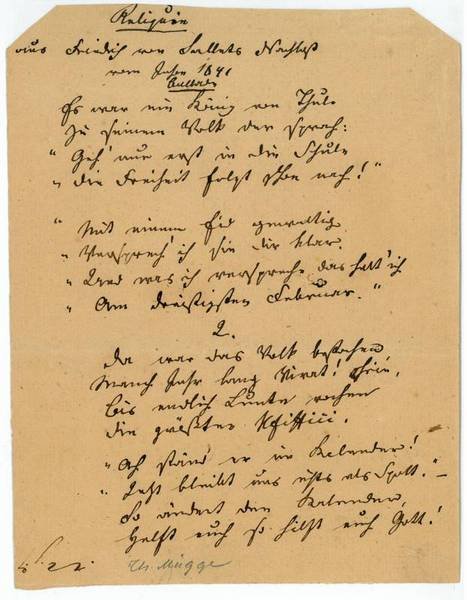 Reliquie
aus Friedrich von Sallets Nachlaß
vom Jahre 1841
Ballade
Es war ein König von Thule
Zu seinem Volk der sprach:
„ Geh' nur erst in die Schule
„ Die Freiheit folgt schon nach!"
„ Mit einem Eid gewaltig
„ Versprech' ich sie dir klar.
„ Und was ich verspreche das halt' ich
„ Am dreißigsten Februar."
2.
Da war das Volk bestochen
Manch Jahr lang Vivat! schrie,
Bis endlich Lunte rochen
die größten
„ Ach ständ' er im Kalender!
„ Jetzt bleibt uns nichts als Spott." –
So ändert den Kalender,
Helft euch so hilft euch Gott!
Th. Mügge